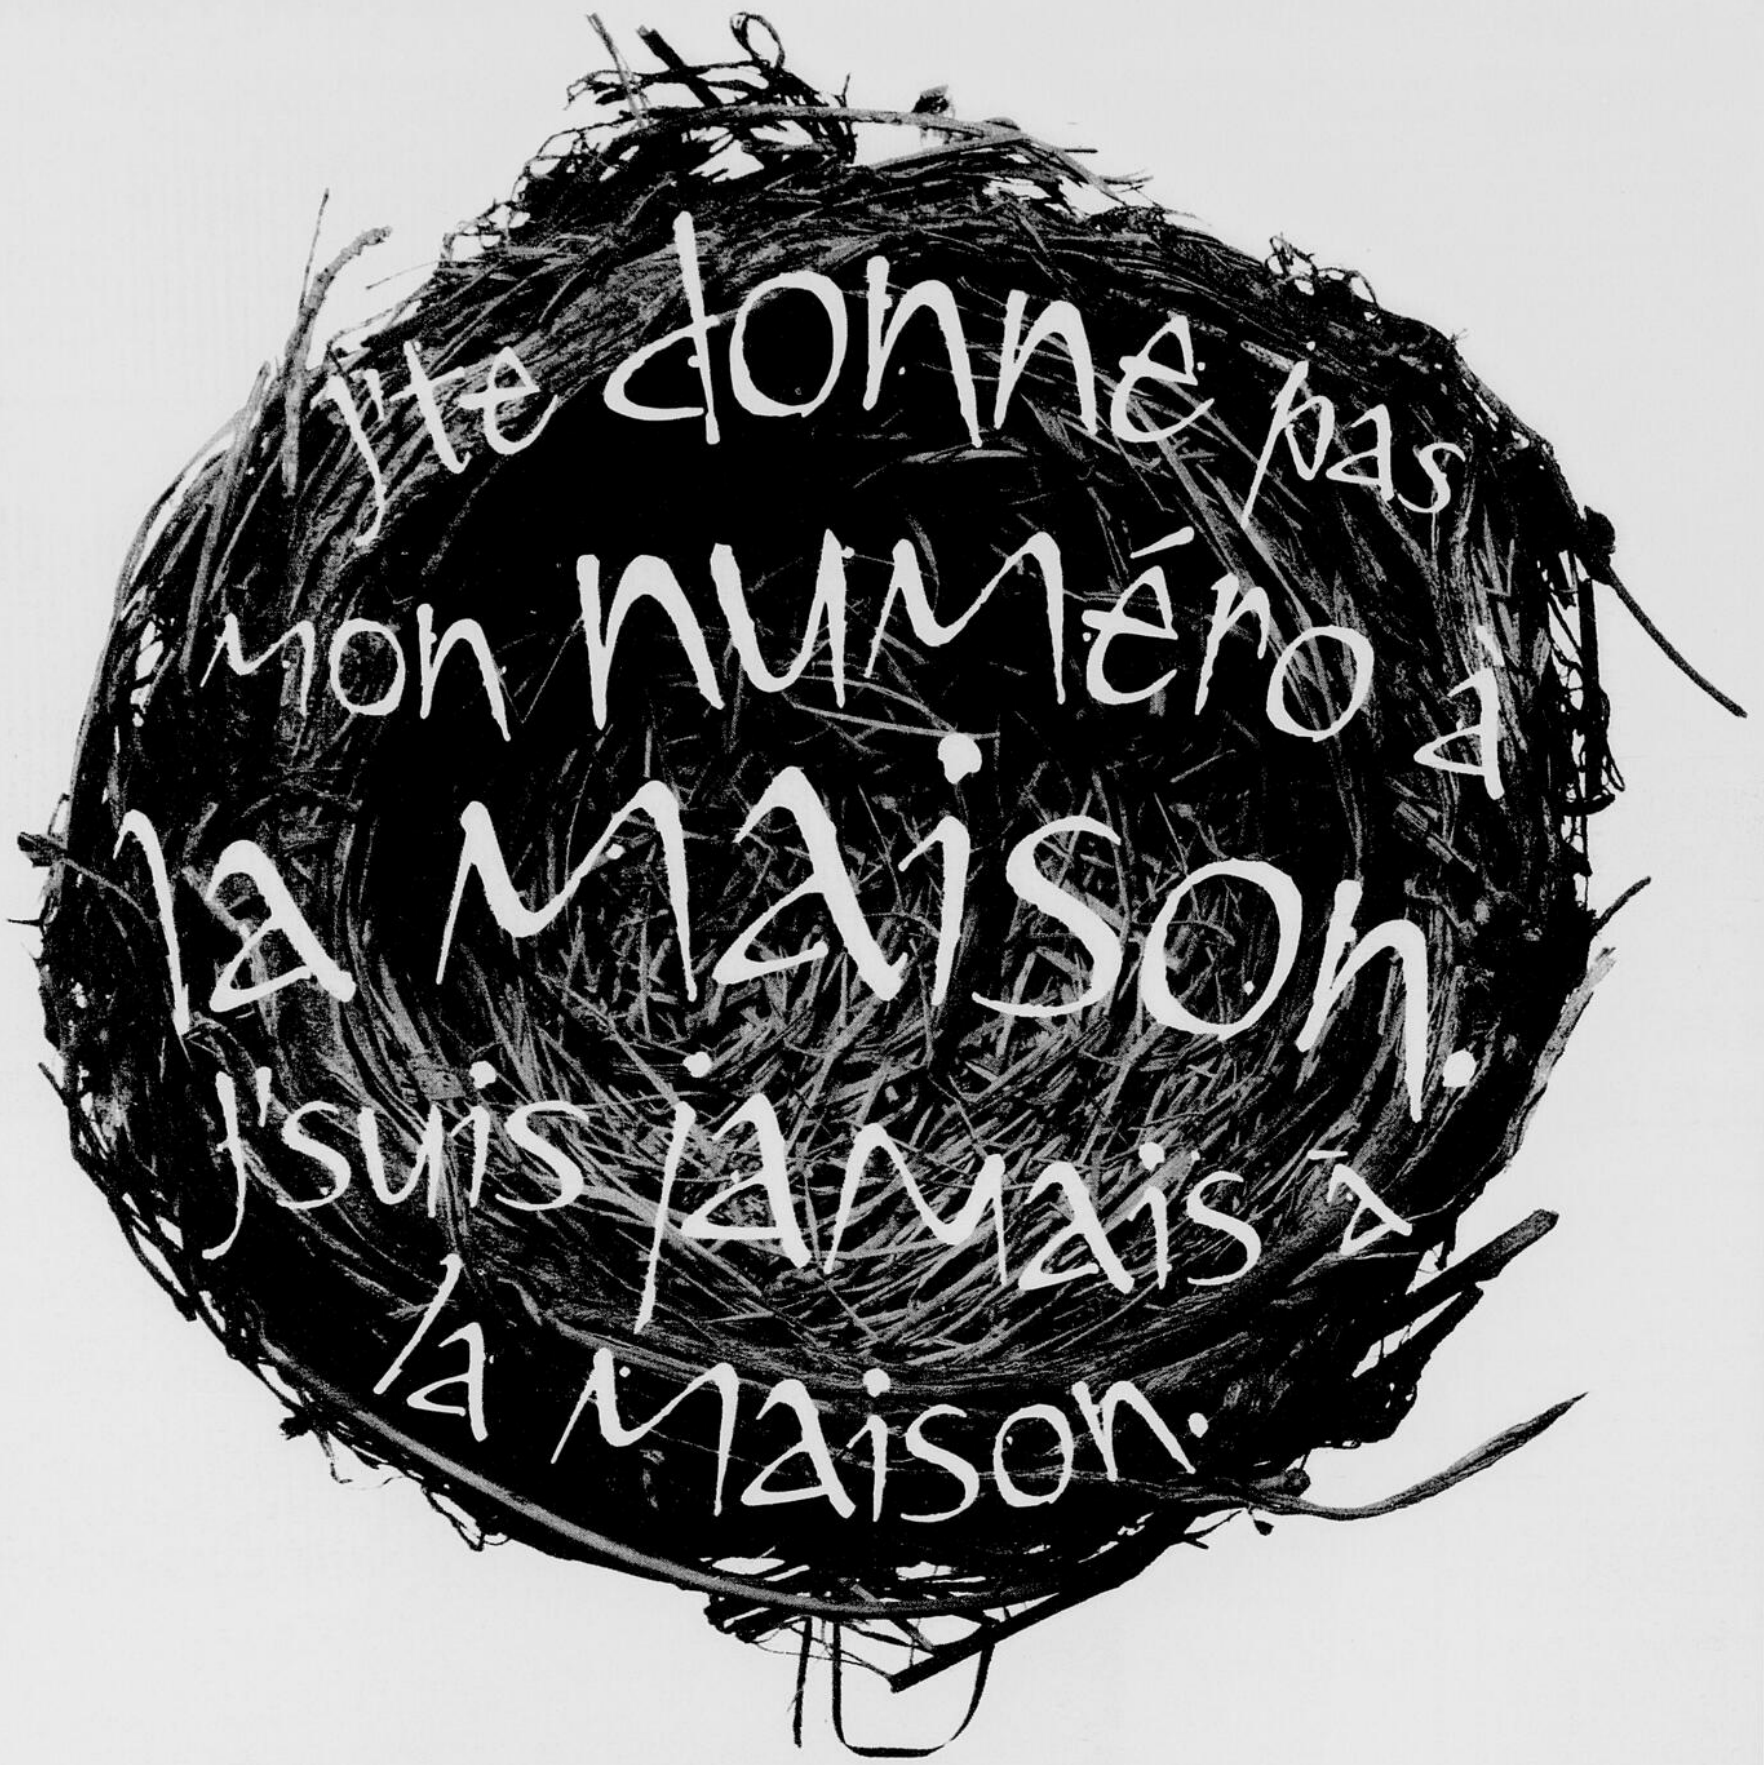 j'te donne pas
mon numéro à
la maison.
j'suis jamais à
la maison.